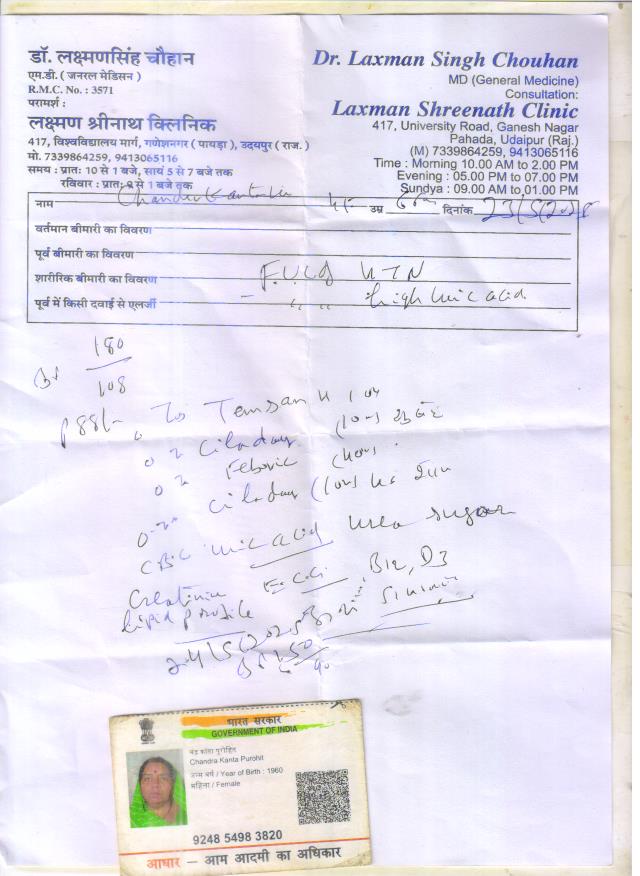 डॉ. लक्ष्मणसिंह चौहान
एम.डी. ( जनरल मेडिसन )
R.M.C. No. : 3571
परामर्श :
लक्ष्मण श्रीनाथ क्लिनिक
417, विश्वविद्यालय मार्ग, गणेशनगर ( पायड़ा ), उदयपुर ( राज. )
मो. 7339864259, 9413065116
समय : प्रातः 10 से 1 बजे, सायं 5 से 7 बजे तक
रविवार : प्रातः 9 से 1 बजे तक
Dr. Laxman Singh Chouhan
MD (General Medicine)
Consultation:
Laxman Shreenath Clinic
417, University Road, Ganesh Nagar
Pahada, Udaipur (Raj.)
(M) 7339864259, 9413065116
Time : Morning 10.00 AM to 2.00 PM
Evening : 05.00 PM to 07.00 PM
Sundya : 09.00 AM to 01.00 PM
नाम Chander Kanta उम्र दिनांक 23/5/2025
वर्तमान बीमारी का विवरण
पूर्व बीमारी का विवरण
शारीरिक बीमारी का विवरण F.U.C of HTN
पूर्व में किसी दवाई से एलर्जी - " " high uric acid
180
108
P 88/-
Temsan H
Ciladay (10mg)
Feburic (40mg)
Ciladay (10mg)
CBC uric acid urea sugar
Creatinine ECG B12, D3
lipid profile
24/5/2025
150
90
भारत सरकार
GOVERNMENT OF INDIA
चंद्र कांता पुरोहित
Chandra Kanta Purohit
जन्म वर्ष / Year of Birth : 1960
महिला / Female
9248 5498 3820
आधार - आम आदमी का अधिकार